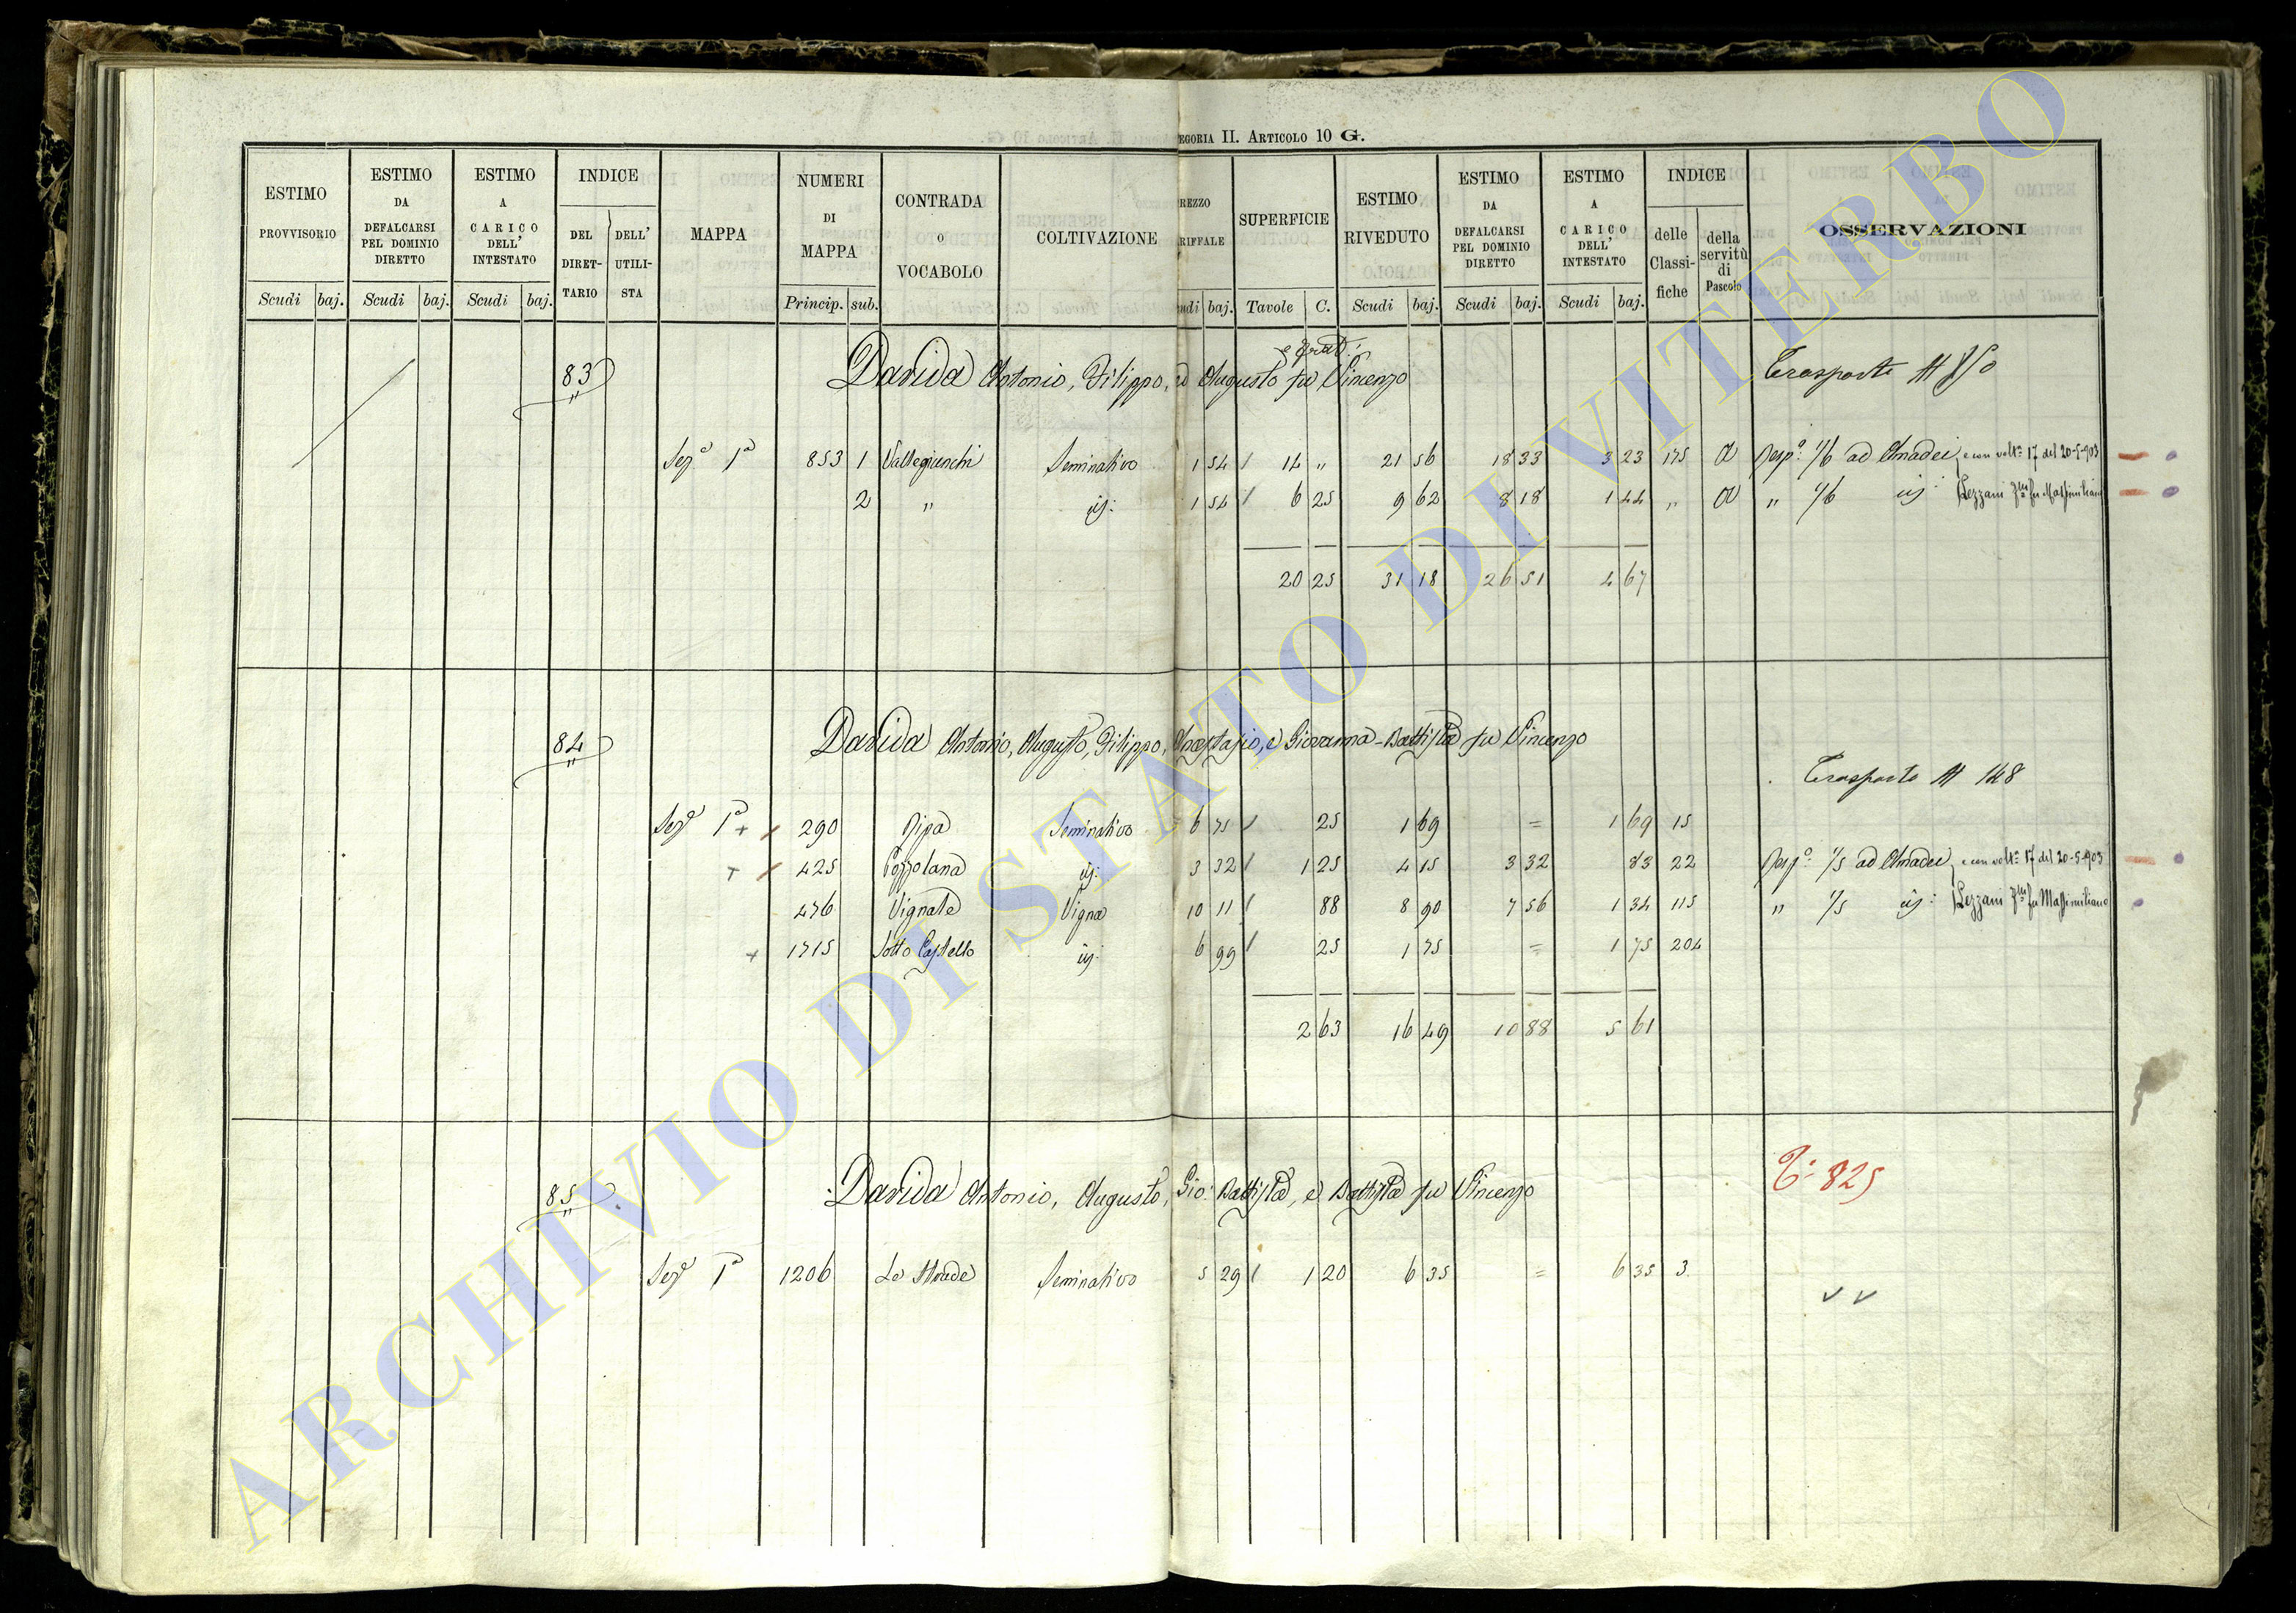 EGORIA II. ARTICOLO 10 G.
ESTIMO PROVVISORIO Scudi baj.
ESTIMO DA DEFALCARSI PEL DOMINIO DIRETTO Scudi baj.
ESTIMO A CARICO DELL' INTESTATO Scudi baj.
INDICE DEL DIRET-TARIO DELL' UTILI-STA
MAPPA
NUMERI DI MAPPA Princip. sub.
CONTRADA O VOCABOLO
COLTIVAZIONE
REZZO RIFFALE udi baj.
SUPERFICIE Tavole C.
ESTIMO RIVEDUTO Scudi baj.
ESTIMO DA DEFALCARSI PEL DOMINIO DIRETTO Scudi baj.
ESTIMO A CARICO DELL' INTESTATO Scudi baj.
INDICE delle Classi-fiche della servitù di Pascolo
OSSERVAZIONI
e frat:
83 " Davida Antonio, Filippo, ed Augusto fu Vincenzo Trasporto
Sez.e 1a 853 1 Vallegiunchi Seminativo 1 54 / 14 " 21 56 18 33 3 23 175 a Resp.e 1/6 ad Amadei e con volt.a 17 del 20-5-903
2 " id: 1 54 / 6 25 9 62 8 18 1 44 " a " 1/6 id: Lezzani fu Massimiliano
20 25 31 18 26 51 4 67
84 " Davida Antonio, Augusto, Filippo, Anastasio, e Giovanna-Battista fu Vincenzo
Trasporto At 148
Sez.e 1a + / 290 Ripa Seminativo 6 75 / 25 1 69 = 1 69 15
+ / 425 Pozzolana id: 3 32 / 1 25 4 15 3 32 83 22 Resp.e 1/5 ad Amadei e con volt.a 17 del 20-5-903
476 Vignale Vigna 10 11 / 88 8 90 7 56 1 34 115 " 1/5 id: Lezzani fu Massimiliano
+ 1715 Sotto Castello id: 6 99 / 25 1 75 = 1 75 204
2 63 16 49 10 88 5 61
85 " Davida Antonio, Augusto, Gio: Battista, e Battista fu Vincenzo T: 825
Sez.e 1a 1206 Le Strade Seminativo 5 29 / 1 20 6 35 = 6 35 3
ARCHIVIO DI STATO DI VITERBO